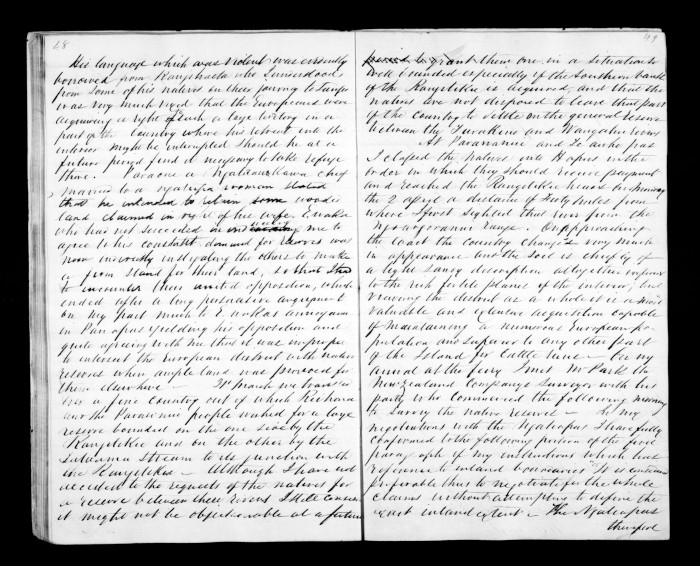 28
His language which was violent was evidently
borrowed from Rangihaeata who I understood
from some of his natives on their journey to
was very much vexed that the Europeans were
acquiring a right of such a large territory in a
part of the Country where his retreat into the
interior might be interrupted should he at a
future period find it necessary to take refuge
there. a chief
married to a woman stated
that he intended to return some
land claimed in right of his wife. E
who has not succeeded in inducing me to
agree to his constant demand for reserves was
now indirectly instigating the others to make
a firm stand for their land, so that I had
to encounter their united opposition, which
ended after a long persuasive argument
on my part much to E annoyance
in yielding his opposition and
quite agreeing with me that it was improper
to intersect the European district with native
reserves when ample land was provided for
them elsewhere — In March we
a fine country out of which
and the people wished for a large
reserve bounded on the one side by the
Rangitikei and on the other by the
Stream to its junction with
the Rangitikei — Although I have not
acceded to the requests of the natives for
a reserve between these Rivers I
it might not be objectionable at a future
49
period to grant them one in a situation so
well bounded especially if the Southern bank
of the Rangitikei is acquired, and that the
natives are not disposed to leave that part
of the country to settle on the general reserve
between the Turakina and Wangaehu rivers
At and
I classed the Natives into Hapus in the
order in which they should receive payment
and reached the Rangitikei heads on Monday
the 2 April a distance of miles from
where I first sighted that river from the
range. On approaching
the Coast the country changes very much
in appearance and the soil is chiefly of
a light sandy description altogether inferior
to the rich fertile plains of the interior, but
viewing the district as a whole it is a most
valuable and extensive acquisition capable
of maintaining a numerous European po-
pulation and superior to any other part
of the Island for Cattle runs — On my
arrival at the ferry I met Mr Park the
New Zealand Company's Surveyor with his
party who commenced the following morning
to survey the native reserves — In my
negotiations with the Ngatiapas I have fully
conformed to the following portion of the
paragraph of my instructions which had
reference to inland boundaries "It is
preferable thus to negotiate for the whole
claims without attempting to define the
exact inland extent — The Ngatiapas
therefore